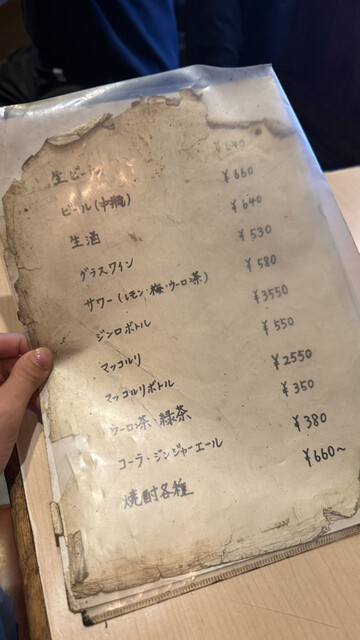 生ビール ¥640
ビール(中瓶) ¥660
生酒 ¥640
グラスワイン ¥530
サワー(レモン・梅・ウーロン茶) ¥580
ジンロボトル ¥3550
マッコルリ ¥550
マッコルリボトル ¥2550
ウーロン茶、緑茶 ¥350
コーラ・ジンジャーエール ¥380
焼酎各種 ¥660〜